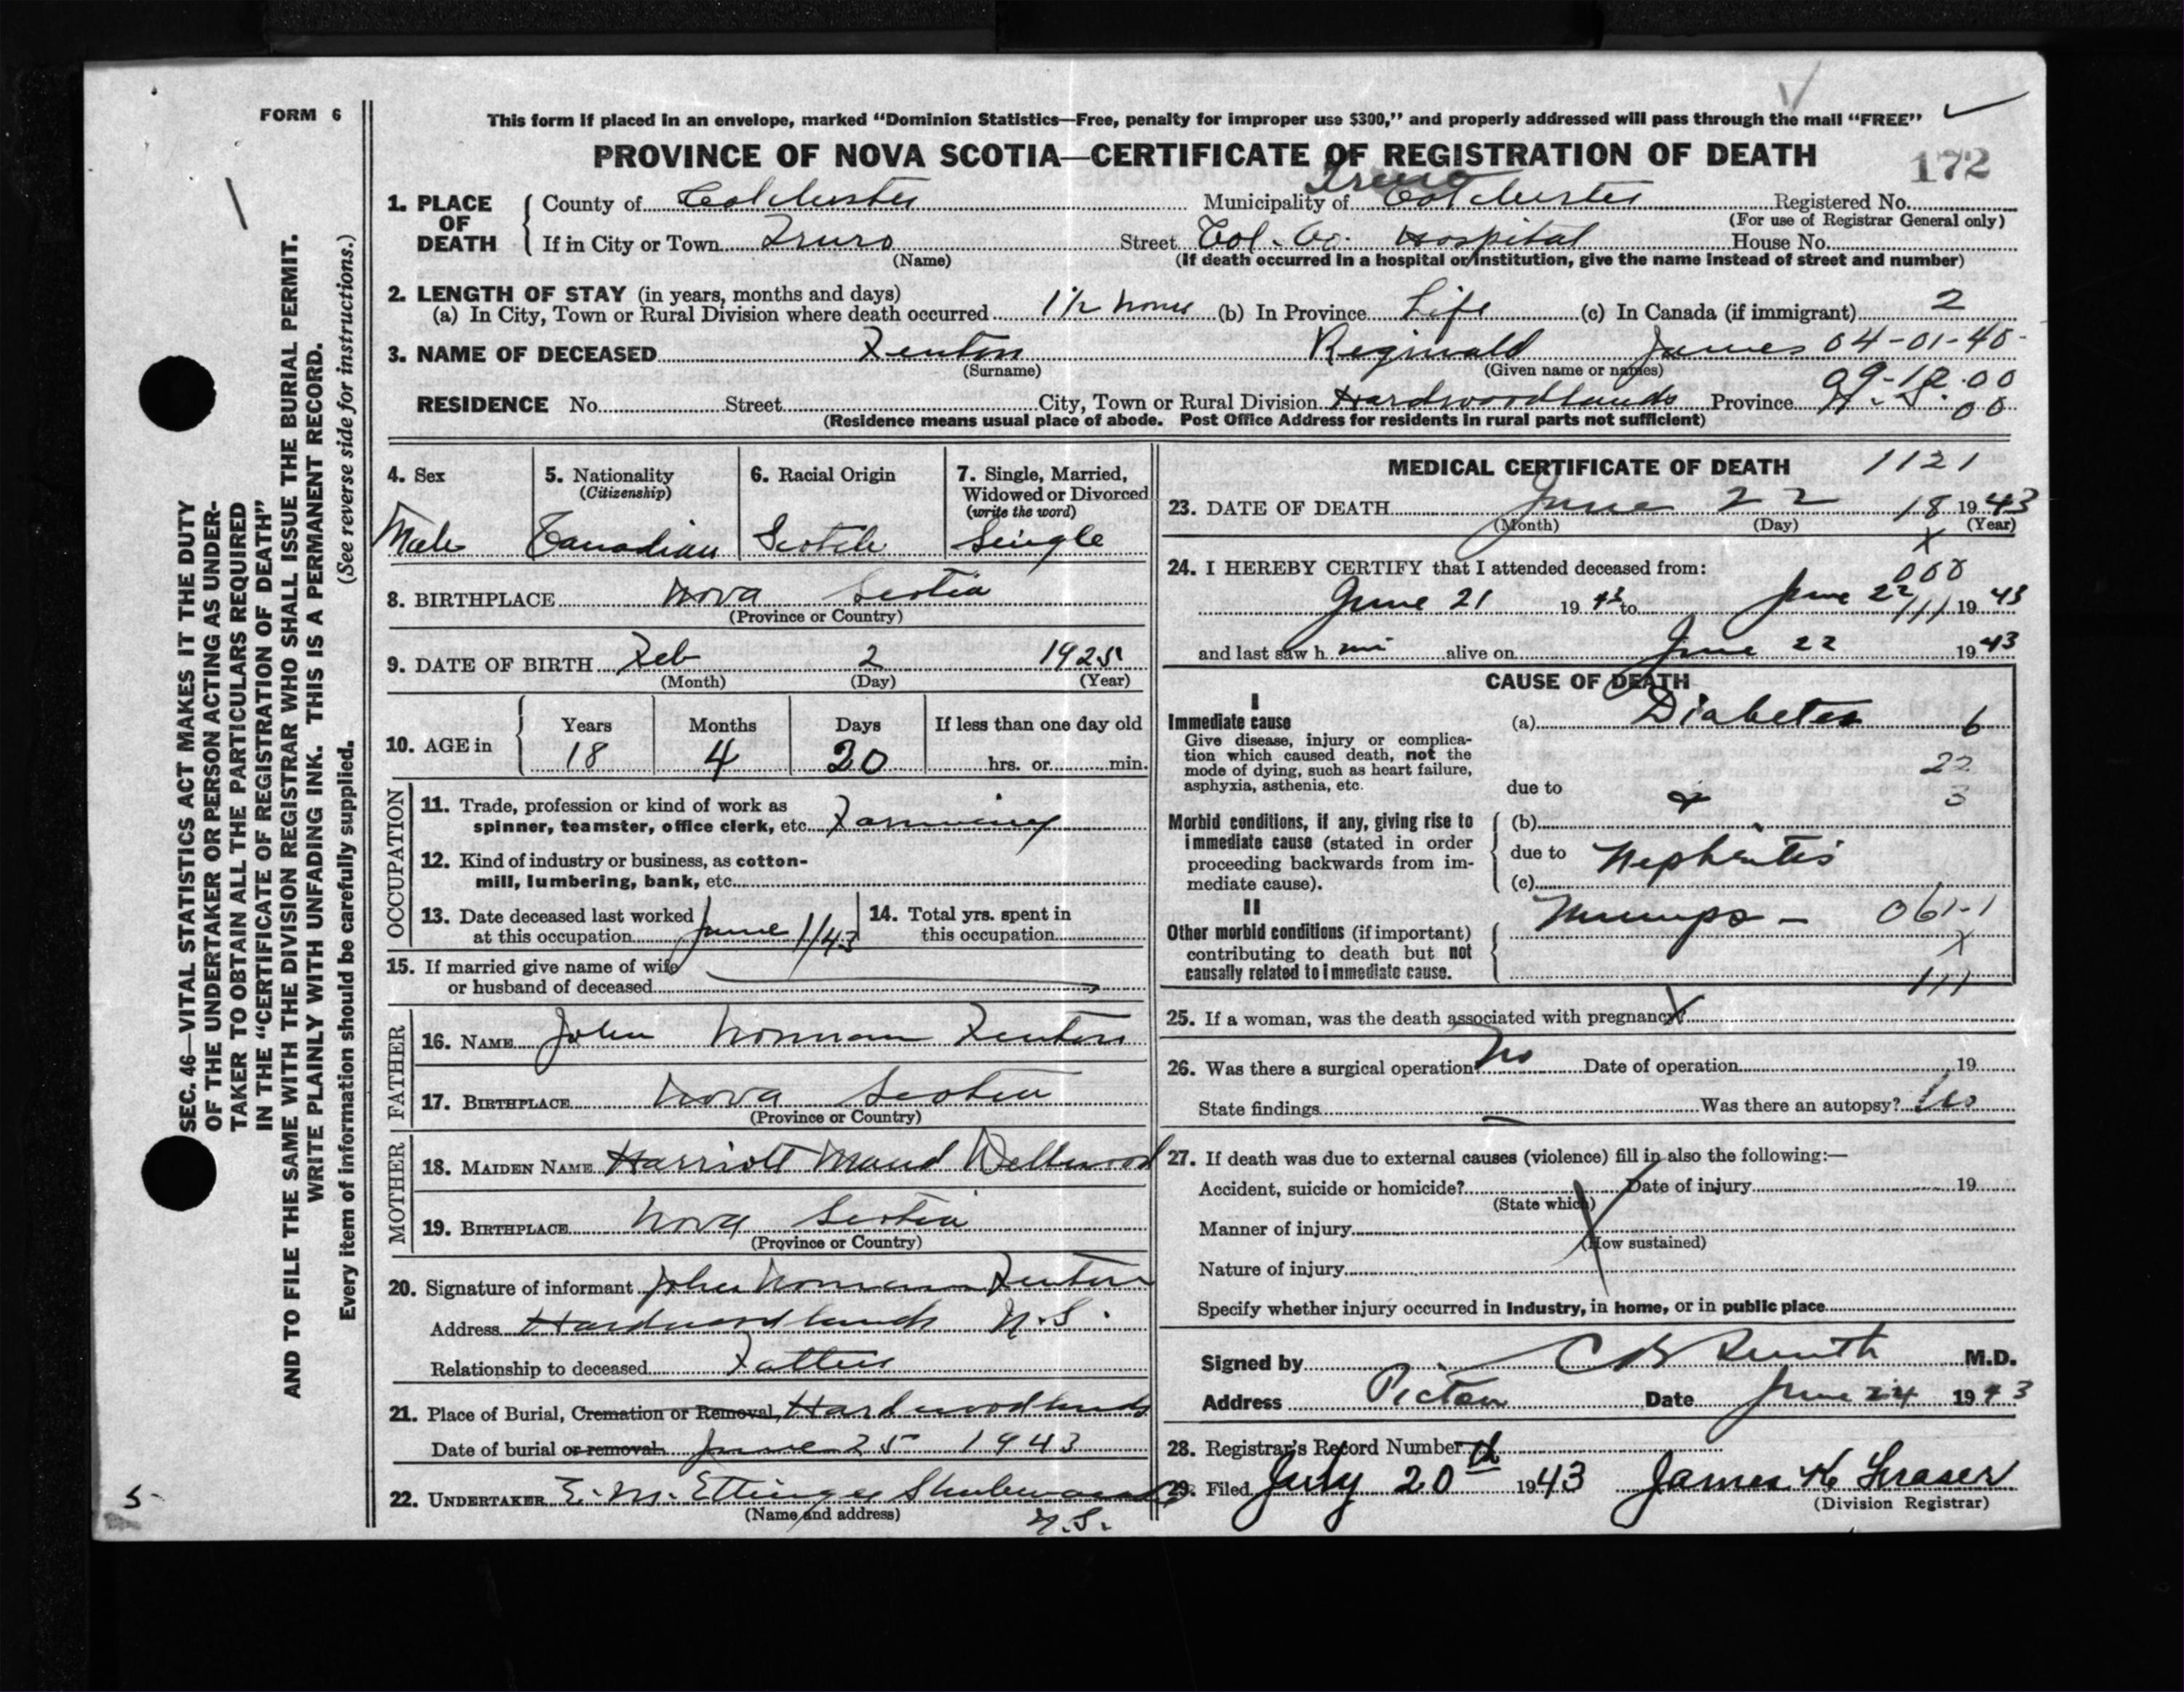 FORM 6
This form if placed in an envelope, marked “Dominion Statistics—Free, penalty for improper use $300,” and properly addressed will pass through the mail “FREE”
PROVINCE OF NOVA SCOTIA—CERTIFICATE OF REGISTRATION OF DEATH
172
1. PLACE OF DEATH
County of Colchester Municipality of Truro Colchester Registered No.
(For use of Registrar General only)
If in City or Town Truro Street Col. Co. Hospital House No.
(Name) (If death occurred in a hospital or institution, give the name instead of street and number)
2. LENGTH OF STAY (in years, months and days)
(a) In City, Town or Rural Division where death occurred 1½ hours (b) In Province Life (c) In Canada (if immigrant) 2
3. NAME OF DECEASED Fenton Reginald James 04-01-40-
(Surname) (Given name or names)
09-12.00
RESIDENCE No. Street City, Town or Rural Division Hardwoodlands Province N.S. 00
(Residence means usual place of abode. Post Office Address for residents in rural parts not sufficient)
4. Sex
Male
5. Nationality
(Citizenship)
Canadian
6. Racial Origin
Scotch
7. Single, Married,
Widowed or Divorced
(write the word)
Single
8. BIRTHPLACE Nova Scotia
(Province or Country)
9. DATE OF BIRTH Feb 2 1925
(Month) (Day) (Year)
10. AGE in
Years Months Days If less than one day old
18 4 20 hrs. or min.
OCCUPATION
11. Trade, profession or kind of work as
spinner, teamster, office clerk, etc. Farming
12. Kind of industry or business, as cotton-
mill, lumbering, bank, etc.
13. Date deceased last worked
at this occupation June 1/43
14. Total yrs. spent in
this occupation
15. If married give name of wife
or husband of deceased
FATHER
16. NAME John Norman Fenton
17. BIRTHPLACE Nova Scotia
(Province or Country)
MOTHER
18. MAIDEN NAME Harriott Maud Wellwood
19. BIRTHPLACE Nova Scotia
(Province or Country)
20. Signature of informant John Norman Fenton
Address Hardwoodlands N.S.
Relationship to deceased Father
21. Place of Burial, Cremation or Removal Hardwoodlands
Date of burial or removal June 25 1943
22. UNDERTAKER E. M. Ettinger Shubenacadie
(Name and address) N.S.
MEDICAL CERTIFICATE OF DEATH 1121
23. DATE OF DEATH June 22 18 1943
(Month) (Day) (Year)
X
24. I HEREBY CERTIFY that I attended deceased from:
000
June 21 1943 to June 22 111 1943
and last saw h im alive on June 22 1943
CAUSE OF DEATH
I
Immediate cause
Give disease, injury or complica-
tion which caused death, not the
mode of dying, such as heart failure,
asphyxia, asthenia, etc.
(a) Diabetes 6
22
due to & 3
Morbid conditions, if any, giving rise to
immediate cause (stated in order
proceeding backwards from im-
mediate cause).
(b)
due to Nephritis
(c)
II
Other morbid conditions (if important)
contributing to death but not
causally related to immediate cause.
Mumps - 061-1
X
111
25. If a woman, was the death associated with pregnancy? X
26. Was there a surgical operation? No Date of operation 19
State findings — Was there an autopsy?
27. If death was due to external causes (violence) fill in also the following:—
Accident, suicide or homicide? Date of injury 19
(State which)
Manner of injury
(How sustained)
Nature of injury
Specify whether injury occurred in Industry, in home, or in public place
Signed by Smith M.D.
Address Pictou Date June 24 1943
28. Registrar's Record Number
29. Filed July 20th 1943 James K Fraser
(Division Registrar)
SEC. 46—VITAL STATISTICS ACT MAKES IT THE DUTY
OF THE UNDERTAKER OR PERSON ACTING AS UNDER-
TAKER TO OBTAIN ALL THE PARTICULARS REQUIRED
IN THE “CERTIFICATE OF REGISTRATION OF DEATH”
AND TO FILE THE SAME WITH THE DIVISION REGISTRAR WHO SHALL ISSUE THE BURIAL PERMIT.
WRITE PLAINLY WITH UNFADING INK. THIS IS A PERMANENT RECORD.
Every item of information should be carefully supplied. (See reverse side for instructions.)
5-